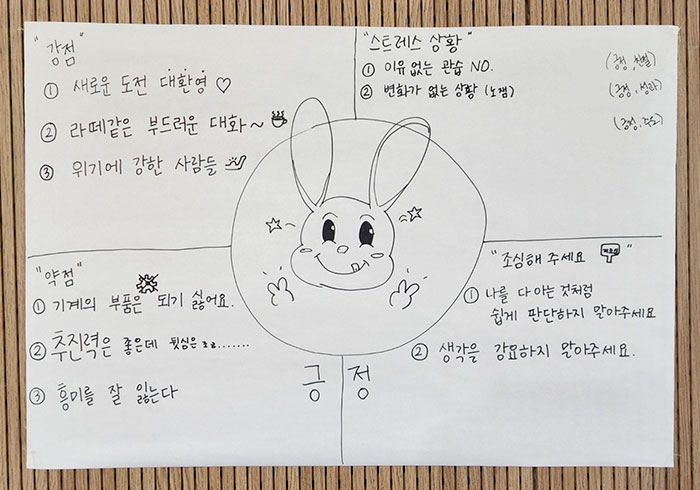 "강점"
① 새로운 도전 대환영 ♡
② 라떼같은 부드러운 대화~
③ 위기에 강한 사람들
"스트레스 상황"
① 이유없는 관습 NO.
② 변화가 없는 상황 (노잼)
(긍정,
(긍정,
(긍정,
"약점"
① 기계의 부품은 되기 싫어요.
② 추진력은 좋은데 뒷심은 조금.......
③ 흥미를 잘 잃는다
"조심해 주세요 "
① 나를 다 아는 것처럼
쉽게 판단하지 말아주세요
② 생각을 강요하지 말아주세요.
긍정